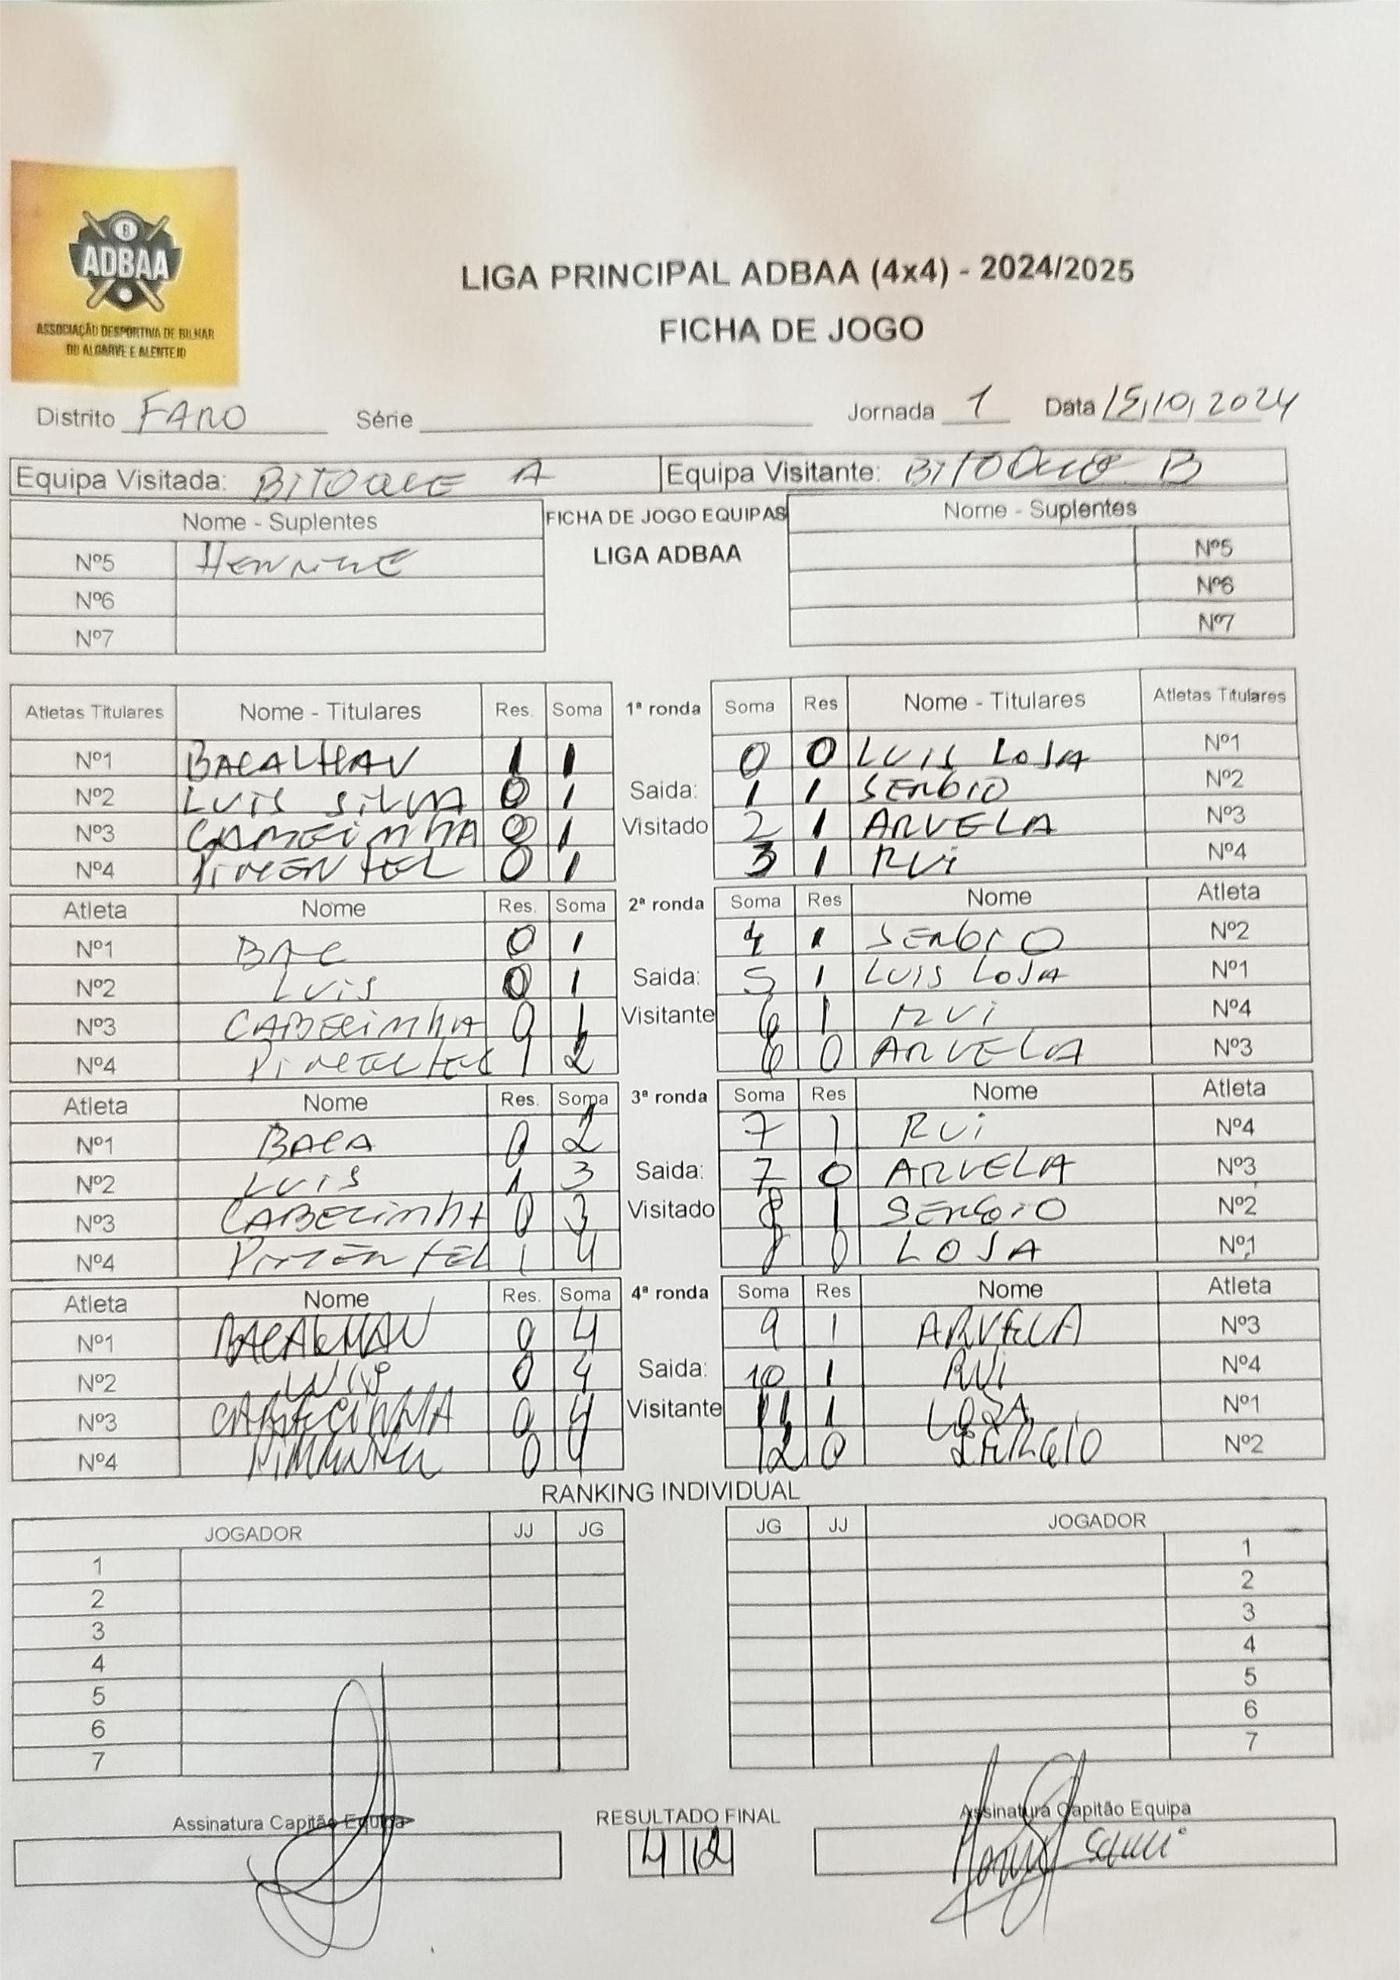 8
ADBAA
ASSOCIAÇÃO DESPORTIVA DE BILHAR
DO ALGARVE E ALENTEJO
LIGA PRINCIPAL ADBAA (4x4) - 2024/2025
FICHA DE JOGO
Distrito FARO Série Jornada 1 Data 15,10,2024
Equipa Visitada: BITOQUE A Equipa Visitante: BITOQUE B
Nome - Suplentes FICHA DE JOGO EQUIPAS Nome - Suplentes
LIGA ADBAA
Nº5 HENRIQUE Nº5
Nº6 Nº6
Nº7 Nº7
Atletas Titulares Nome - Titulares Res. Soma 1ª ronda Soma Res Nome - Titulares Atletas Titulares
Nº1 BACALHAU 1 1 0 0 LUIS LOJA Nº1
Nº2 LUIS SILVA 0 1 Saida: 1 1 SERGIO Nº2
Nº3 CABECINHA 0 1 Visitado 2 1 ARVELA Nº3
Nº4 PIMENTEL 0 1 3 1 RUI Nº4
Atleta Nome Res. Soma 2ª ronda Soma Res Nome Atleta
Nº1 BAC 0 1 4 1 SERGIO Nº2
Nº2 LUIS 0 1 Saida: 5 1 LUIS LOJA Nº1
Nº3 CABECINHA 0 1 Visitante 6 1 RUI Nº4
Nº4 PIMENTEL 1 2 6 0 ARVELA Nº3
Atleta Nome Res. Soma 3ª ronda Soma Res Nome Atleta
Nº1 BACA 0 2 7 1 RUI Nº4
Nº2 LUIS 1 3 Saida: 7 0 ARVELA Nº3
Nº3 CABECINHA 0 3 Visitado 8 1 SERGIO Nº2
Nº4 PIMENTEL 1 4 8 0 LOJA Nº1
Atleta Nome Res. Soma 4ª ronda Soma Res Nome Atleta
Nº1 BACALHAU 0 4 9 1 ARVELA Nº3
Nº2 LUIS 0 4 Saida: 10 1 RUI Nº4
Nº3 CABECINHA 0 4 Visitante 11 1 LOZA Nº1
Nº4 PIMENTEL 0 4 12 0 SERGIO Nº2
RANKING INDIVIDUAL
JOGADOR JJ JG JG JJ JOGADOR
1 1
2 2
3 3
4 4
5 5
6 6
7 7
Assinatura Capitão Equipa RESULTADO FINAL Assinatura Capitão Equipa
4 12